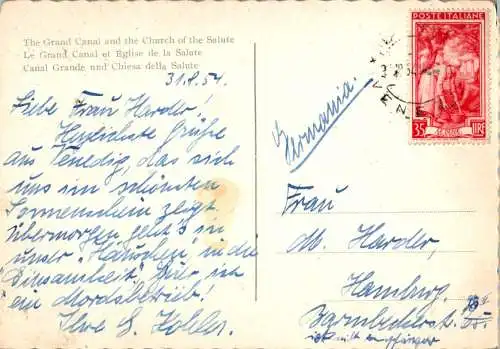 The Grand Canal and the Church of the Salute
Le Grand Canal et Eglise de la Salute
Canal Grande und Chiesa della Salute
31.8.54.
Liebe Frau Harder!
Herzlichste Grüße
aus Venedig, das sich
uns im schönsten
Sonnenschein zeigt
Übermorgen geht's in
unser "Häuschen" in die
Einsamkeit. Hier ist
ein Mordsbetrieb!
Ihre G. Kohler.
POSTE ITALIANE
35 LIRE
VENE
Germania.
Frau
M. Harder,
Hamburg.